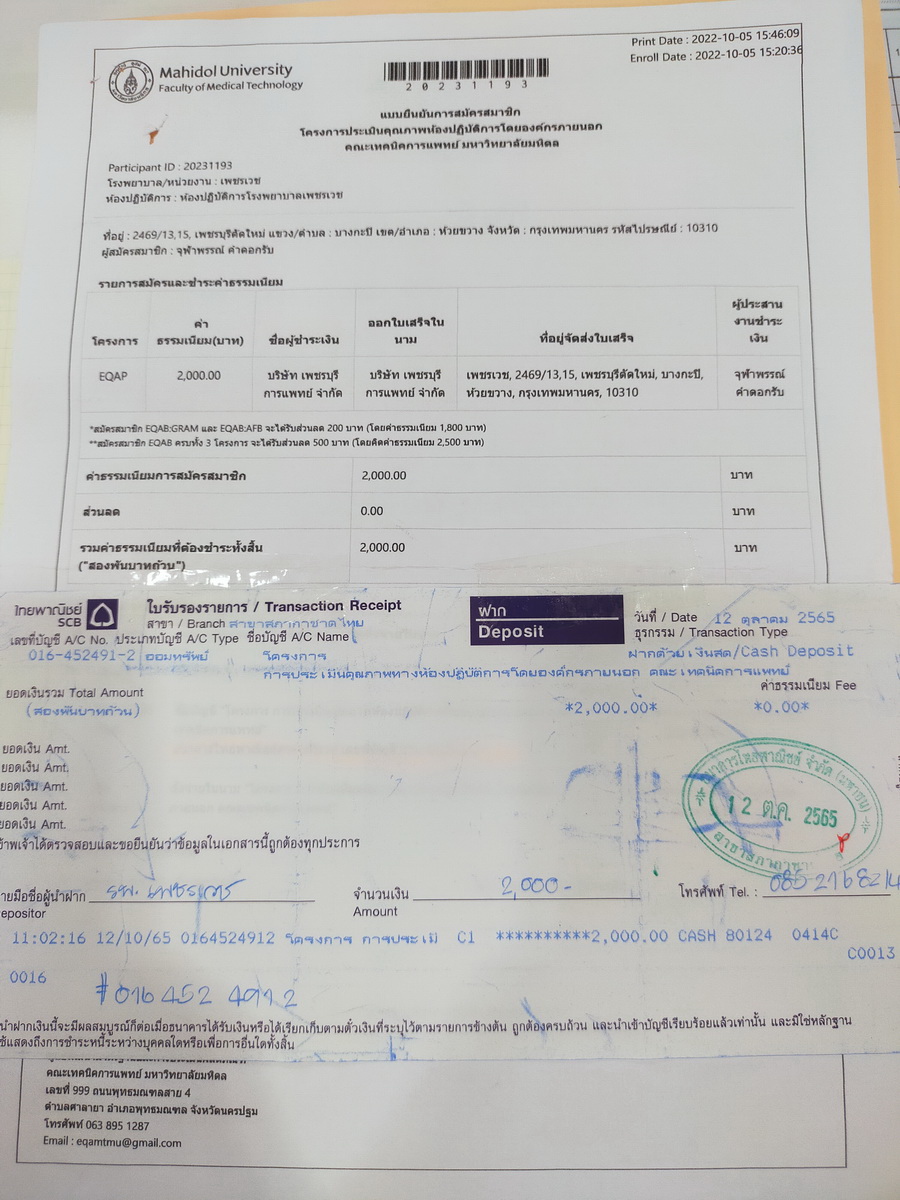 Print Date : 2022-10-05 15:46:09
Enroll Date : 2022-10-05 15:20:36
Mahidol University
Faculty of Medical Technology
20231193
แบบยืนยันการสมัครสมาชิก
โครงการประเมินคุณภาพห้องปฏิบัติการโดยองค์กรภายนอก
คณะเทคนิคการแพทย์ มหาวิทยาลัยมหิดล
Participant ID : 20231193
โรงพยาบาล/หน่วยงาน : เพชรเวช
ห้องปฏิบัติการ : ห้องปฏิบัติการโรงพยาบาลเพชรเวช
ที่อยู่ : 2469/13,15, เพชรบุรีตัดใหม่ แขวง/ตำบล : บางกะปิ เขต/อำเภอ : ห้วยขวาง จังหวัด : กรุงเทพมหานคร รหัสไปรษณีย์ : 10310
ผู้สมัครสมาชิก : จุฬาพรรณ์ คำดอกรับ
รายการสมัครและชำระค่าธรรมเนียม
โครงการ ค่าธรรมเนียม(บาท) ชื่อผู้ชำระเงิน ออกใบเสร็จในนาม ที่อยู่จัดส่งใบเสร็จ ผู้ประสานงานชำระเงิน
EQAP 2,000.00 บริษัท เพชรบุรีการแพทย์ จำกัด บริษัท เพชรบุรีการแพทย์ จำกัด เพชรเวช, 2469/13,15, เพชรบุรีตัดใหม่, บางกะปิ, ห้วยขวาง, กรุงเทพมหานคร, 10310 จุฬาพรรณ์ คำดอกรับ
*สมัครสมาชิก EQAB:GRAM และ EQAB:AFB จะได้รับส่วนลด 200 บาท (โดยค่าธรรมเนียม 1,800 บาท)
**สมัครสมาชิก EQAB ครบทั้ง 3 โครงการ จะได้รับส่วนลด 500 บาท (โดยคิดค่าธรรมเนียม 2,500 บาท)
ค่าธรรมเนียมการสมัครสมาชิก 2,000.00 บาท
ส่วนลด 0.00 บาท
รวมค่าธรรมเนียมที่ต้องชำระทั้งสิ้น 2,000.00 บาท
("สองพันบาทถ้วน")
ไทยพาณิชย์
SCB
ใบรับรองรายการ / Transaction Receipt
สาขา / Branch สาขาสภากาชาดไทย
ฝาก
Deposit
วันที่ / Date 12 ตุลาคม 2565
ธุรกรรม / Transaction Type
ฝากด้วยเงินสด/Cash Deposit
เลขที่บัญชี A/C No. ประเภทบัญชี A/C Type ชื่อบัญชี A/C Name
016-452491-2 ออมทรัพย์ โครงการ
การประเมินคุณภาพทางห้องปฏิบัติการโดยองค์กรภายนอก คณะเทคนิคการแพทย์
ยอดเงินรวม Total Amount ค่าธรรมเนียม Fee
(สองพันบาทถ้วน) *2,000.00* *0.00*
ยอดเงิน Amt.
ยอดเงิน Amt.
ยอดเงิน Amt.
ยอดเงิน Amt.
ยอดเงิน Amt.
ธนาคารไทยพาณิชย์ จำกัด (มหาชน)
12 ต.ค. 2565
ข้าพเจ้าได้ตรวจสอบและขอยืนยันว่าข้อมูลในเอกสารนี้ถูกต้องทุกประการ
ลายมือชื่อผู้นำฝาก รพ. เพชรเวช จำนวนเงิน 2,000- โทรศัพท์ Tel. : 0852168214
epositor Amount
11:02:16 12/10/65 0164524912 โครงการ การประเมิ C1 **********2,000.00 CASH 80124 0414C
C0013
0016
#016 452 4912
นำฝากเงินนี้จะมีผลสมบูรณ์ก็ต่อเมื่อธนาคารได้รับเงินหรือได้เรียกเก็บตามตั๋วเงินที่ระบุไว้ตามรายการข้างต้น ถูกต้องครบถ้วน และนำเข้าบัญชีเรียบร้อยแล้วเท่านั้น และมิใช่หลักฐาน
ช้แสดงถึงการชำระหนี้ระหว่างบุคคลใดหรือเพื่อการอื่นใดทั้งสิ้น
คณะเทคนิคการแพทย์ มหาวิทยาลัยมหิดล
เลขที่ 999 ถนนพุทธมณฑลสาย 4
ตำบลศาลายา อำเภอพุทธมณฑล จังหวัดนครปฐม
โทรศัพท์ 063 895 1287
Email : eqamtmu@gmail.com